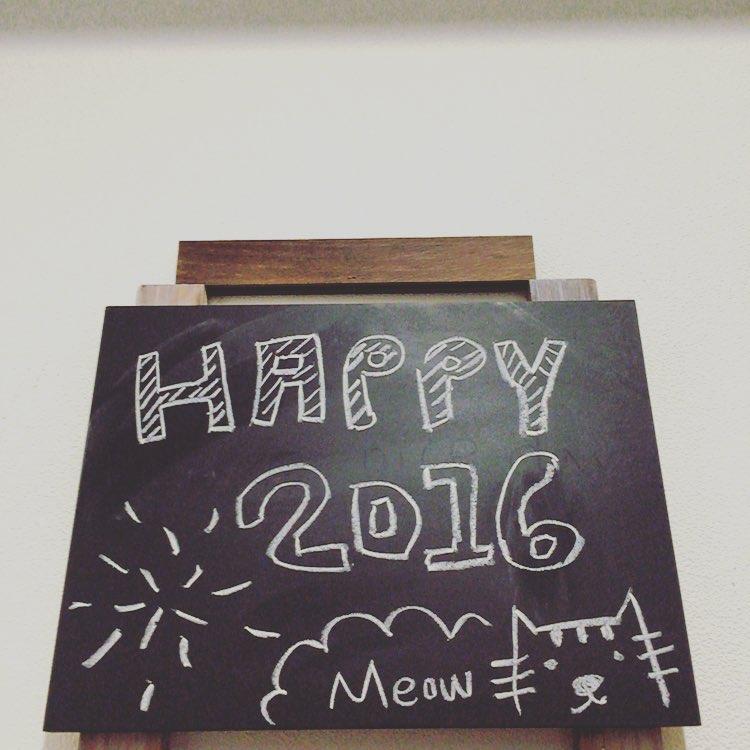 HAPPY
2016
Meow